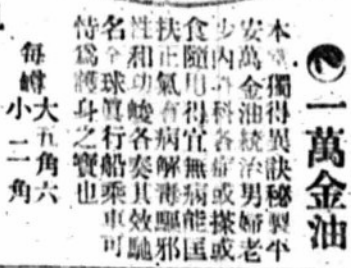 一萬金油
本堂獨得異訣秘製平
安萬金油統治男婦老
少內外科各症或搽或
食隨用得宜無病能匡
扶正氣有病解毒驅邪
性和功峻各奏其效馳
名全球眞行船乘車可
恃爲護身之寶也
每罇大五角六
小二角